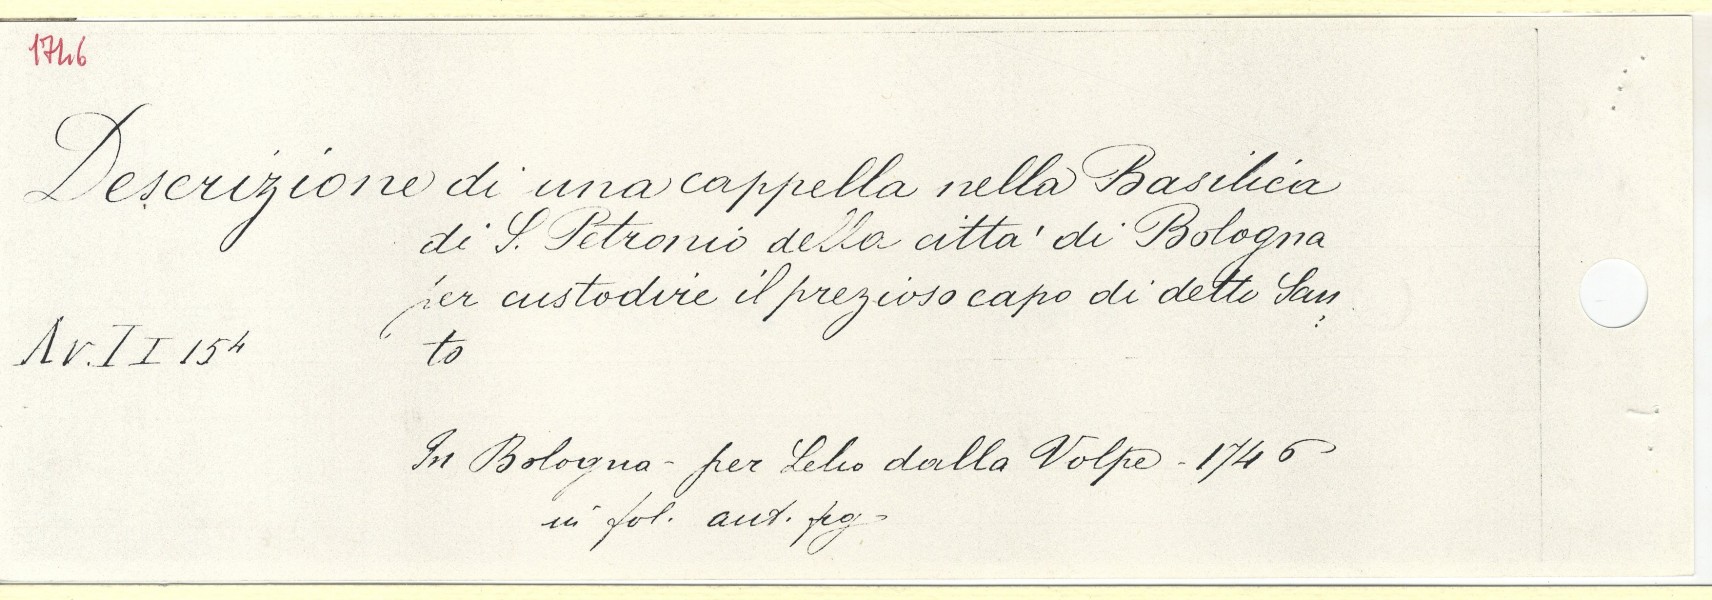 1746
Descrizione di una cappella nella Basilica
di S. Petronio della citta' di Bologna
per custodire il prezioso capo di detto San
Av. I I 154
to
In Bologna - per Lelio dalla Volpe - 1746
in fol. ant. pg